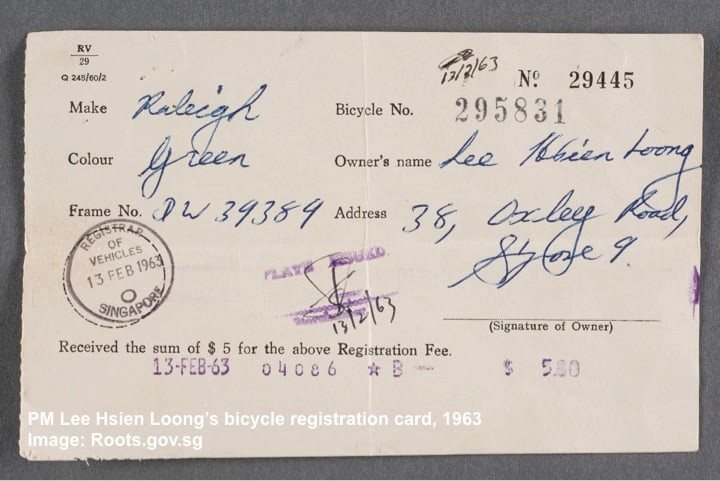 RV
29
Q 245/60/2
13/2/63
Nº 29445
Make Raleigh
Bicycle No. 295831
Colour Green
Owner's name Lee Hsien Loong
Frame No. DW 39389
Address 38, Oxley Road,
S'pore 9.
REGISTRAR
OF
VEHICLES
13 FEB 1963
SINGAPORE
PLATE ISSUED
13/2/63
(Signature of Owner)
Received the sum of $ 5 for the above Registration Fee.
13-FEB-63 04086 ★ B — $ 5.00
PM Lee Hsien Loong's bicycle registration card, 1963
Image: Roots.gov.sg